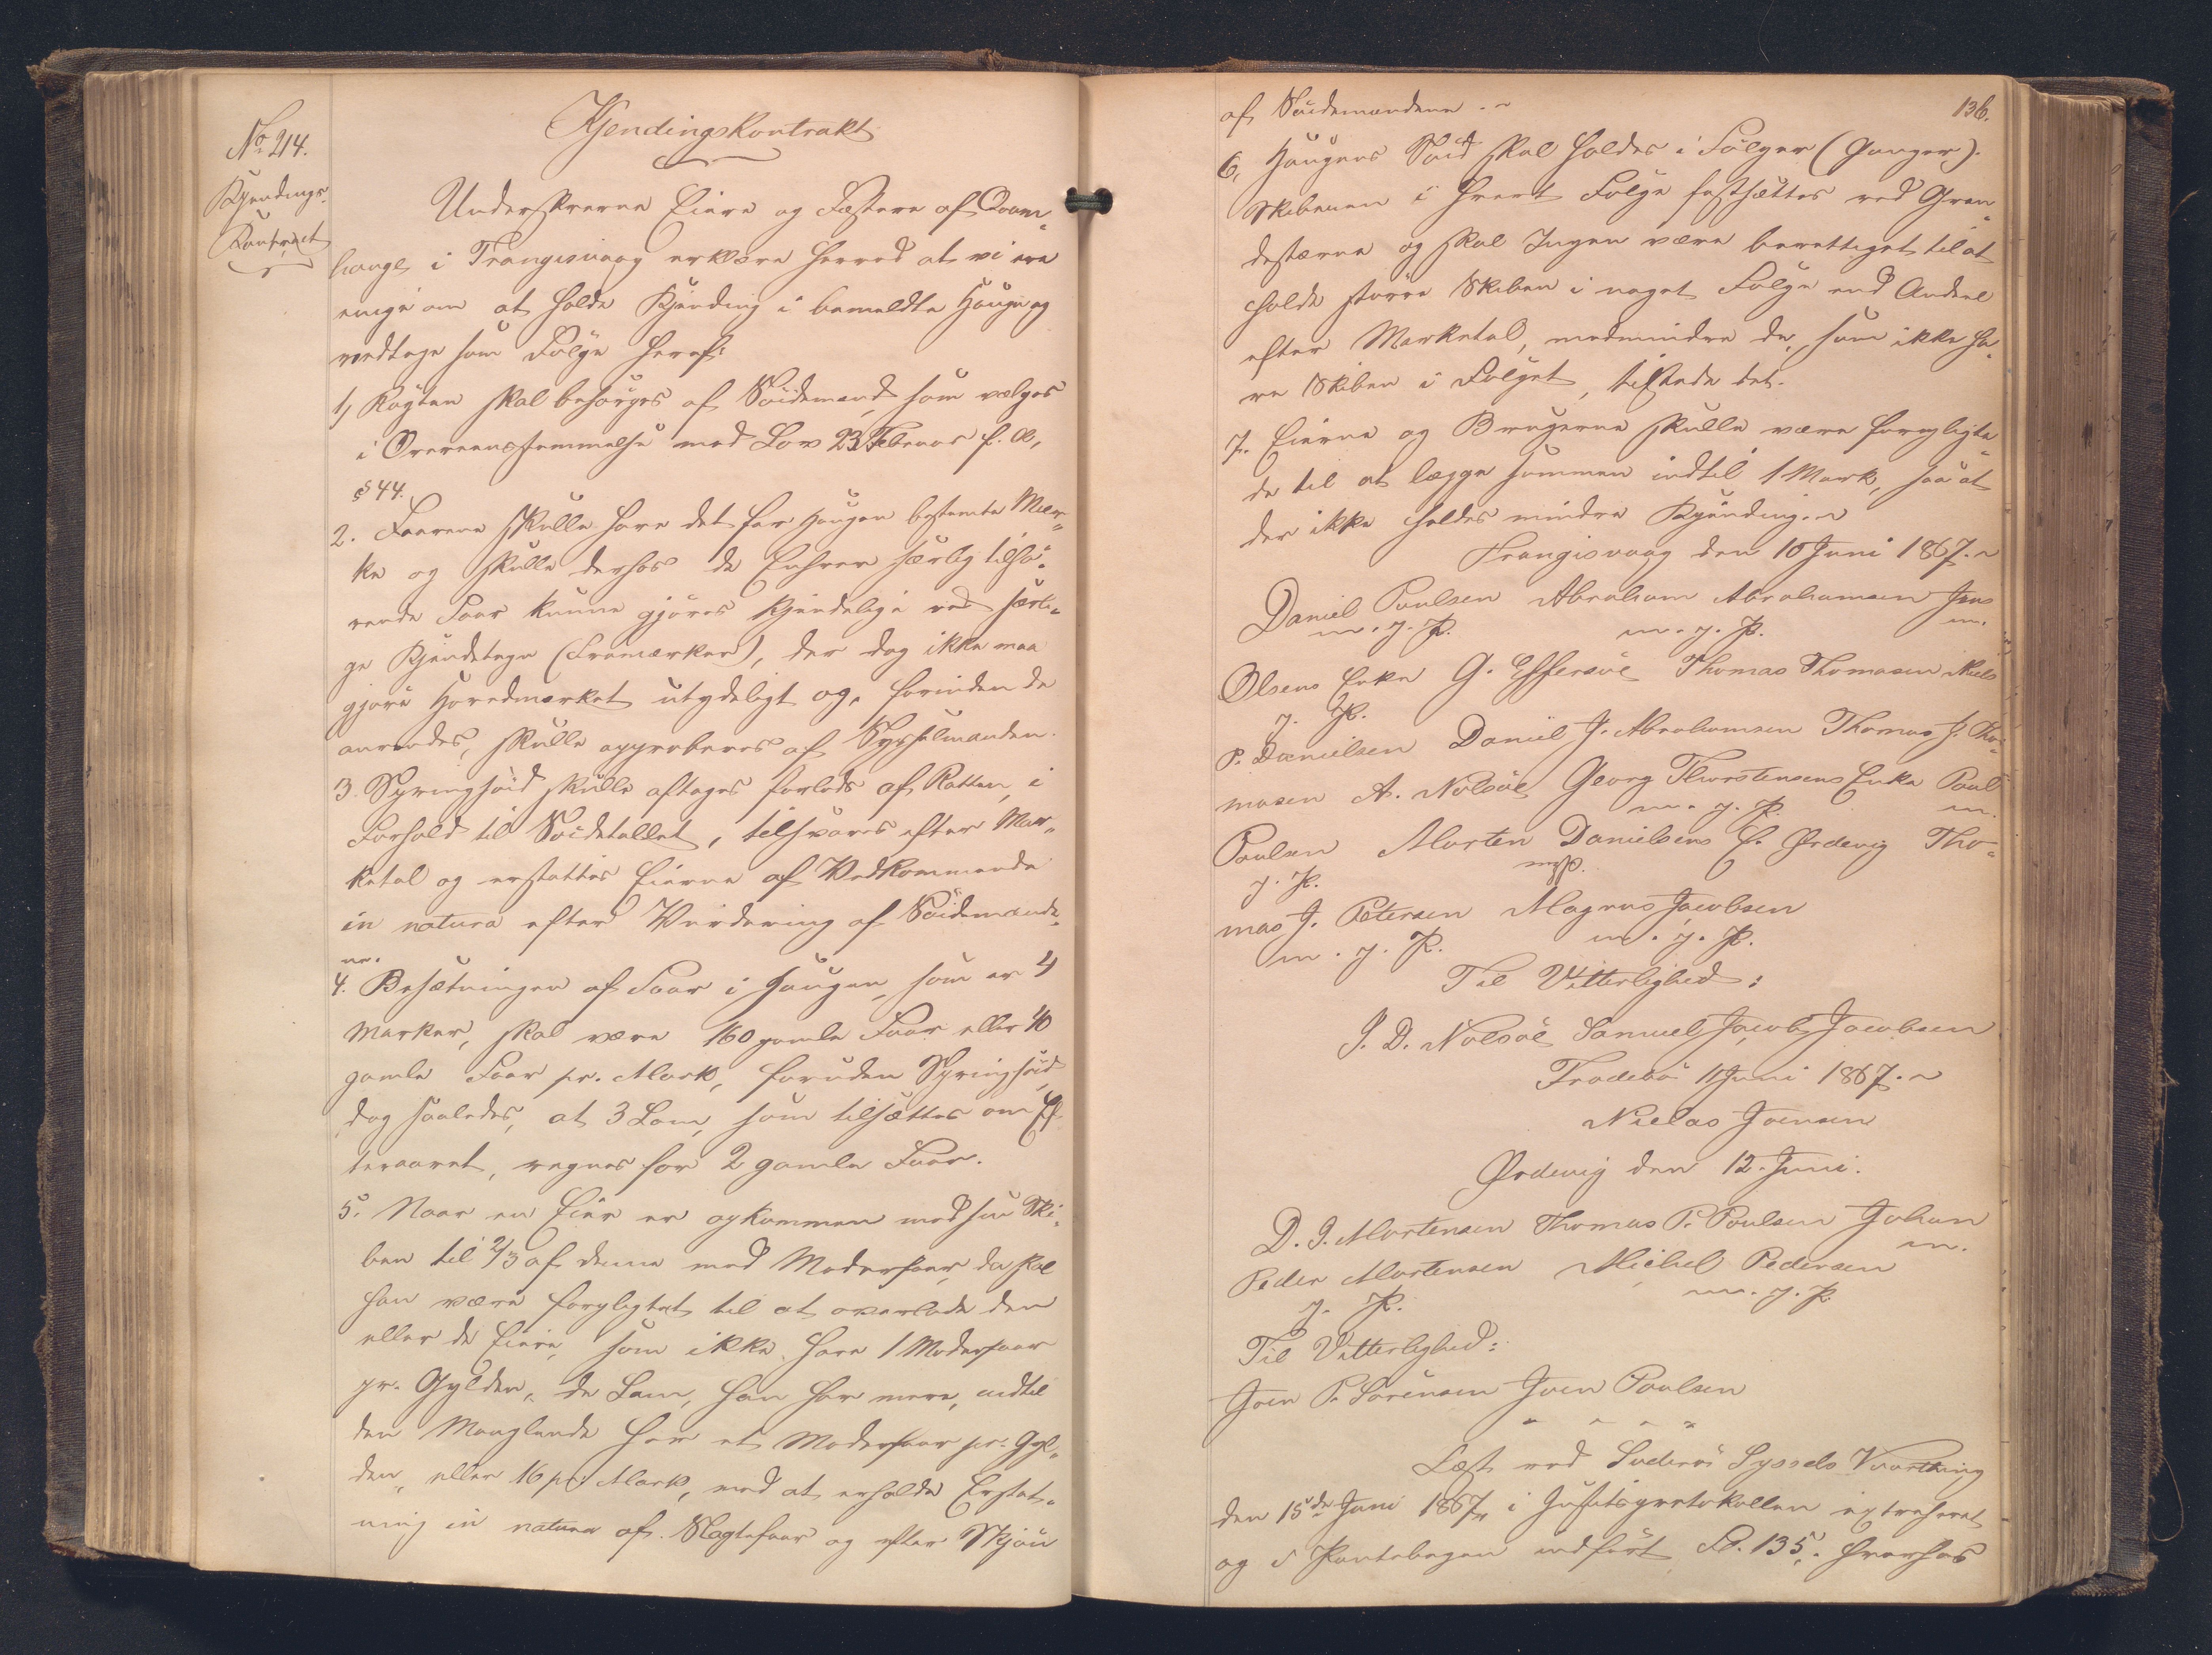 No 214.
Kjendings-
Kontract
Kjendingskontrakt
Underskrevne Eiere og Fæstere af Qvan-
hauge i Trangisvaag erklære herved at vi ere
enige om at holde Kjending i bemeldte Hauge og
vedtage som Følge heraf:
1) Røgten skal besørges af Söidemænd, som vælges
i Overeensstemmelse med Lov 23 Februar f. A.,
§ 44.
2. Faarene skulle have det for Haugen bestemte Mær-
ke og skulle derhos de Enhver særlig tilhö-
rende Faar kunne gjöres kjendelige ved særli-
ge Kjendetegn (Framærker), der dog ikke maa
gjöre Hovedmærket utydeligt og, forinden de
anvendes, skulle approberes af Sysselmanden.
3. Springsöid skulle aftages forlods af Retten, i
Forhold til Söidetallet, tilsvares efter Mar-
ketal og erstattes Eierne af Vedkommende
in natura efter Vurdering af Söidemænde-
ne.
4. Besætningen af Faar i Haugen, som er 4
Marker, skal være 160 gamle Faar eller 40
gamle Faar pr. Mark, foruden Springsöid,
dog saaledes, at 3 Lam, som tilsættes om Ef-
teraaret, regnes for 2 gamle Faar.
5. Naar en Eier er opkommen med sin Ski-
ben til 2/3 af denne med Moderfaar, da skal
han være forpligtet til at overlade den
eller de Eiere, som ikke have 1 Moderfaar
pr. Gylden, de Lam, han har mere, indtil
den Manglende har et Moderfaar pr. Gyl-
den, eller 16 pr. Mark, med at erholde Erstat-
ning in natura af Slagtefaar og efter Skjön
136.
af Söidemændene.
6, Haugens Söid skal holdes i Fölger (Ganger).
Skibenen i hvert Fölge fastsættes ved Gran-
destævne og skal Ingen være berettiget til at
holde större Skiben i noget Fölge end Andeel
efter Marketal, medmindre de, som ikke ha-
ve Skiben i Fölget, tillade det.
7. Eierne og Brugerne skulle være forpligte-
de til at lægge sammen indtil 1 Mark, saa at
der ikke holdes mindre Kjending.
Trangisvaag den 10 Juni 1867.
Daniel Poulsen Abraham Abrahamsen Jens
m. f. P. m. f. P. m.
Olsens Enke G. Effersöe Thomas Thomasen Niels
f. P.
P. Danielsen Daniel J. Abrahamsen Thomas J. Tho-
masen A. Nolsöe Georg Thorstensens Enke Poul
m. f. P. m.
Poulsen Morten Danielsens E. Ördevig Tho-
f. P. mfP.
mas J. Petersen Magnus Jacobsen
m. f. P. m. f. P.
Til Vitterlighed:
J. D. Nolsöe Samuel Jacob Jacobsen
Frodebö 11 Juni 1867.
Nielas Joensen
Ördevig den 12. Juni.
D. J. Mortensen Thomas P. Poulsen Johan
m.
Peder Mortensen Michel Pedersen
f. P. m. f. P.
Til Vitterlighed:
Joen P. Sörensen Joen Poulsen
Læst ved Suderö Syssels Vaarthing
den 15de Juni 1867, i Justitsprotokollen extraheret
og i Pantebogen indfört Fol. 135, hvorhos